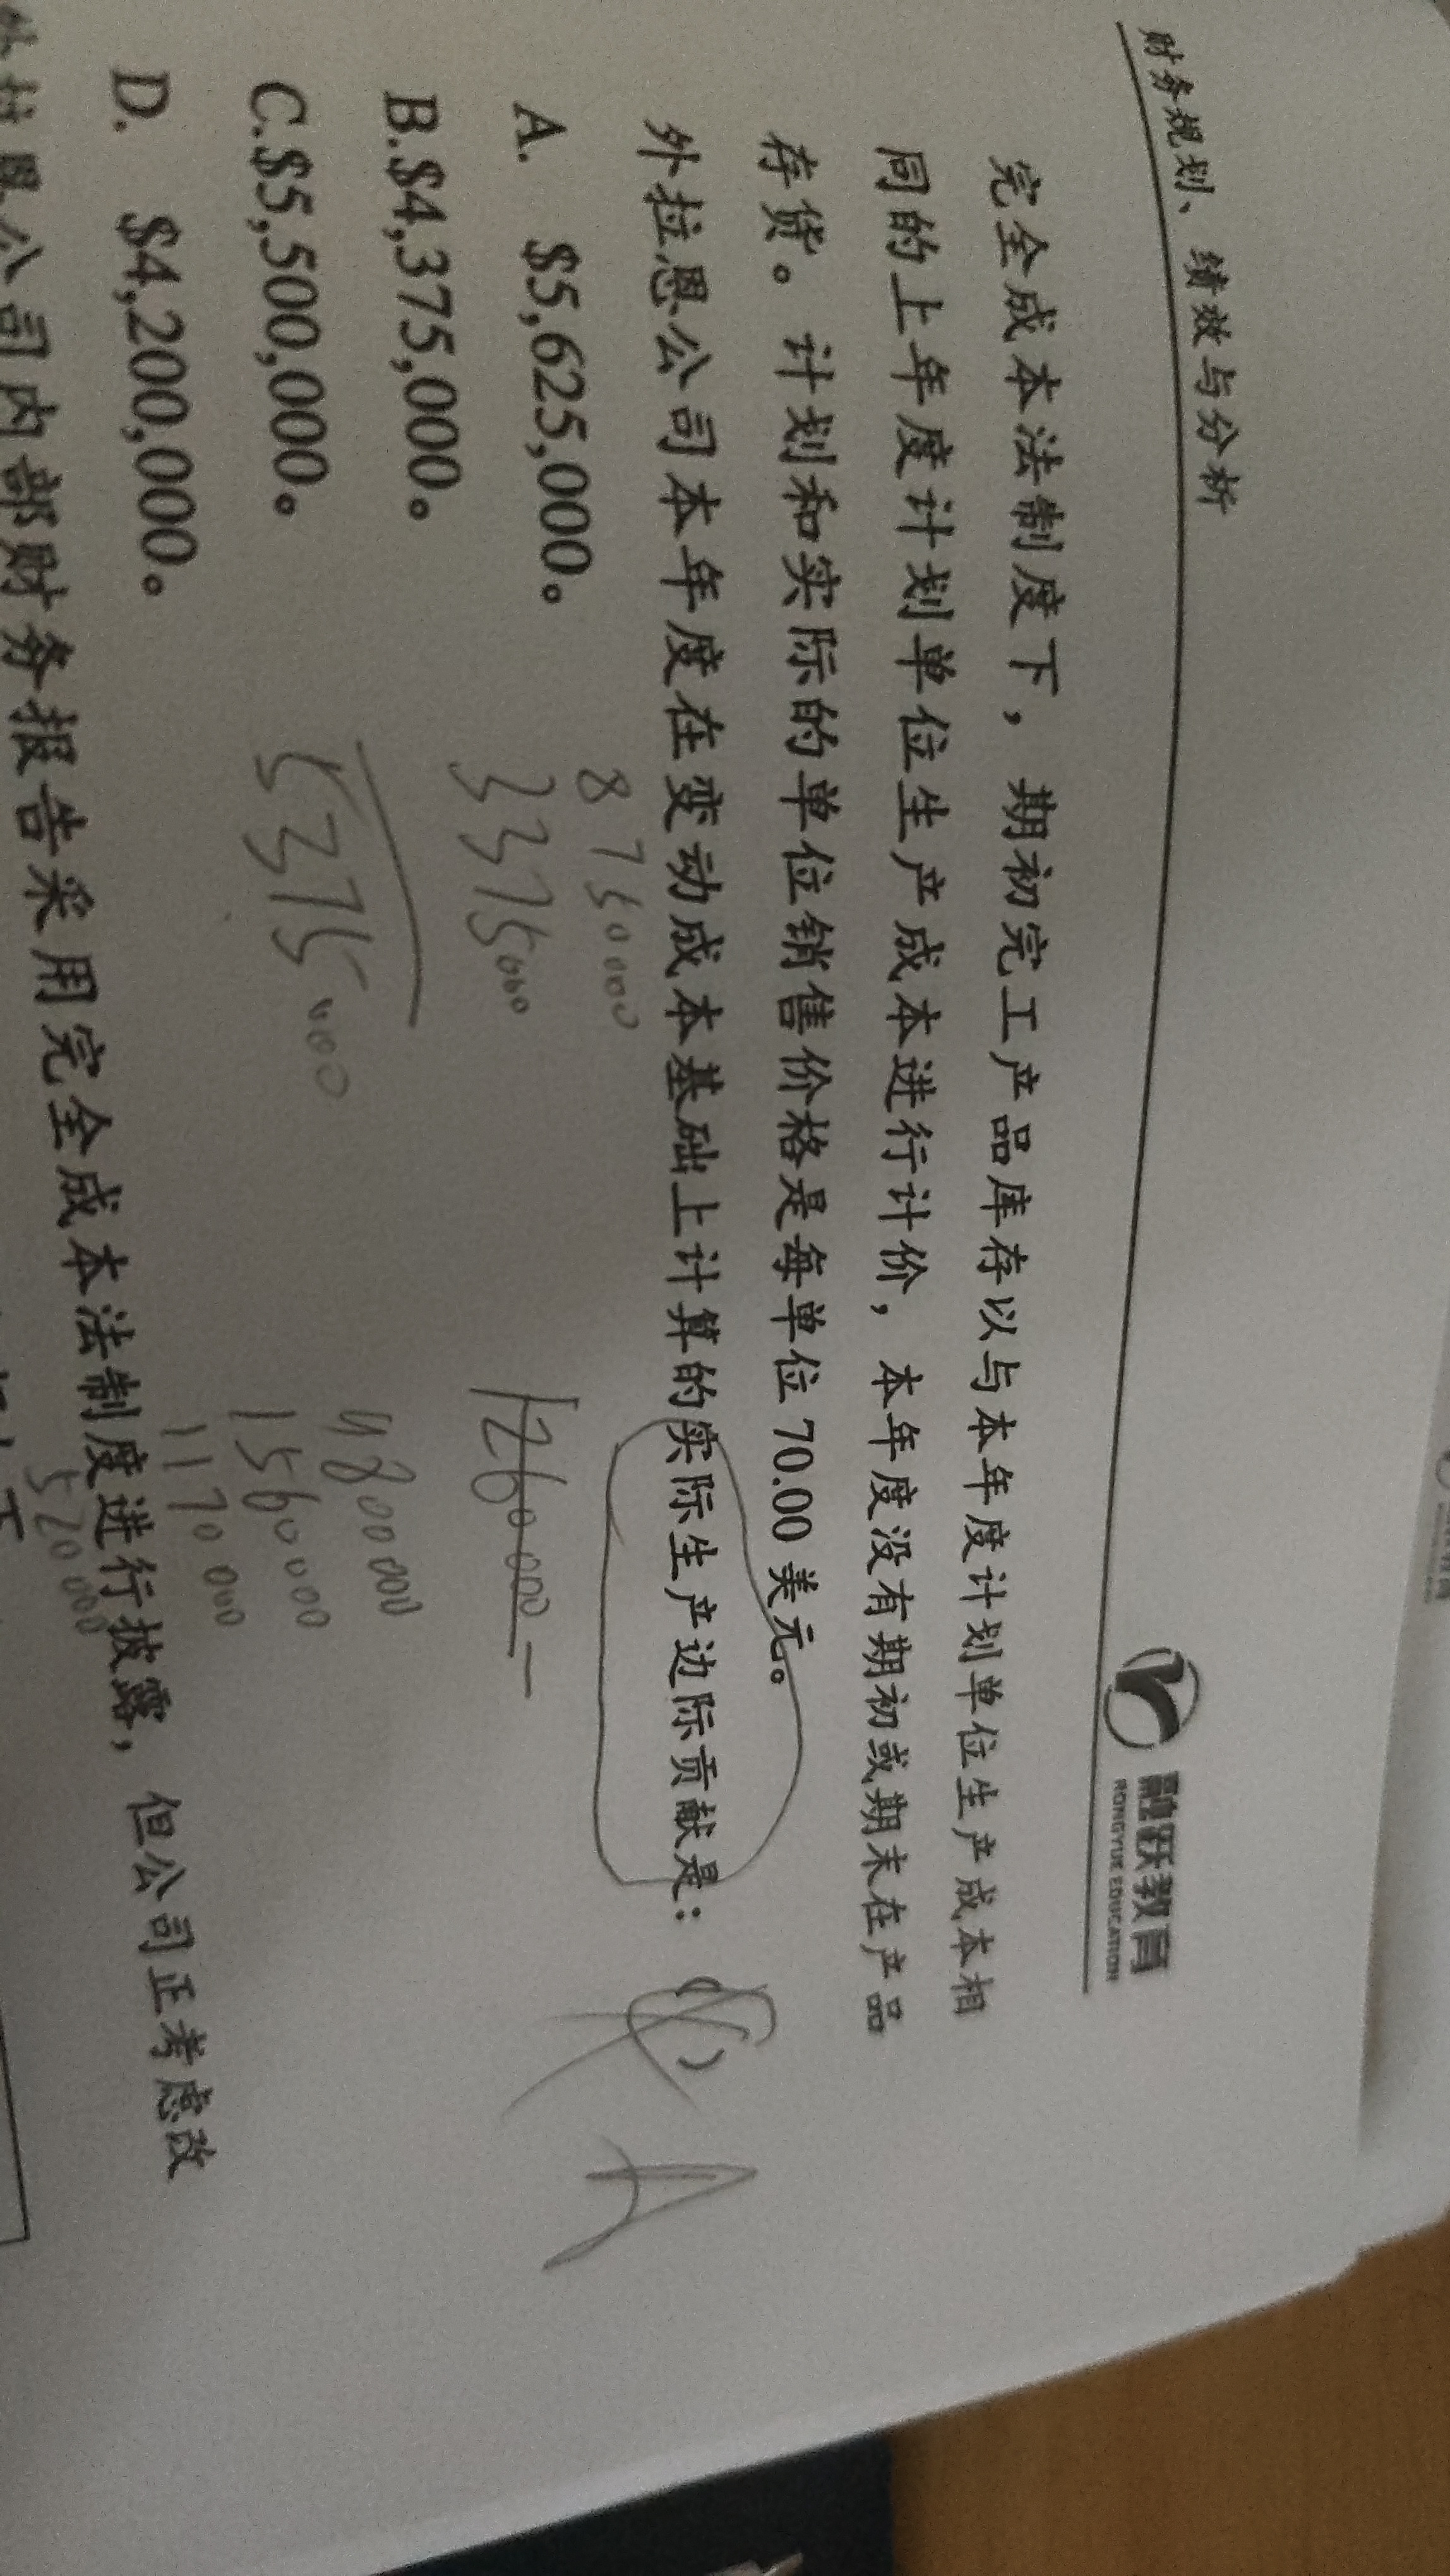 财务规划、绩效与分析
融跃教育
RONGYUE EDUCATION
完全成本法制度下，期初完工产品库存以与本年度计划单位生产成本相
同的上年度计划单位生产成本进行计价，本年度没有期初或期末在产品
存货。计划和实际的单位销售价格是每单位 70.00 美元。
外拉恩公司本年度在变动成本基础上计算的实际生产边际贡献是：
A
A. $5,625,000。
B.$4,375,000。
C.$5,500,000。
D. $4,200,000。
8750000
3375000
5375000
1260000
480000
1560000
1170000
520000
外拉恩公司内部财务报告采用完全成本法制度进行披露，但公司正考虑改